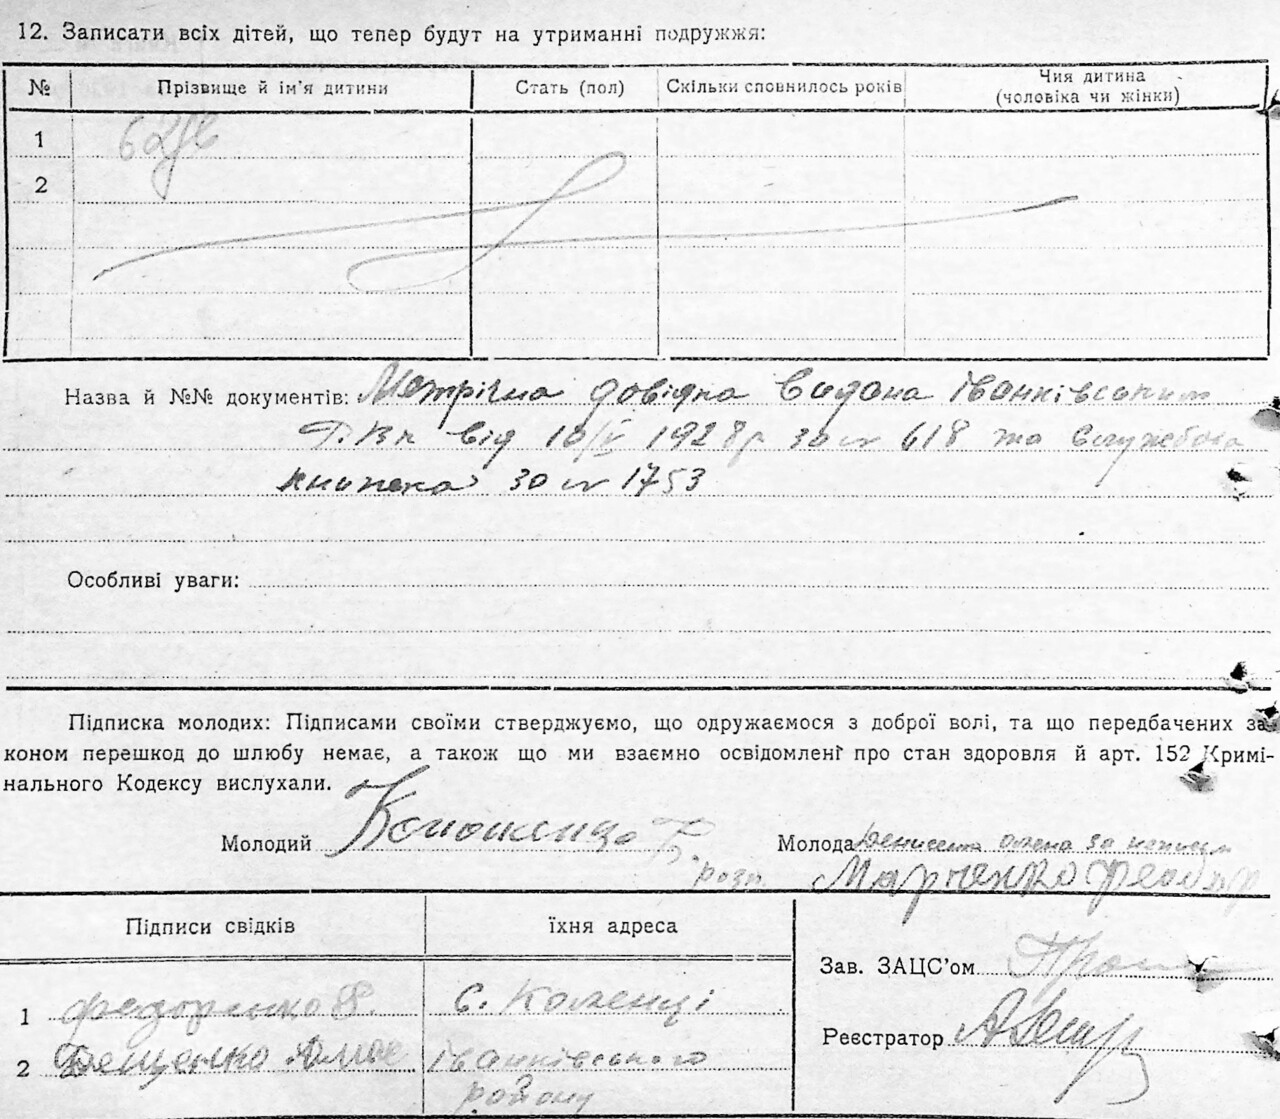 12. Записати всіх дітей, що тепер будут на утриманні подружжя:
№ Прізвище й ім'я дитини Стать (пол) Скільки сповнилось років Чия дитина
(чоловіка чи жінки)
1
2
Назва й №№ документів: Метрічна довідка видана Іванківським
від 10/IV 1928 р за № 618 та Службова
книжка за № 1753
Особливі уваги:
Підписка молодих: Підписами своїми стверджуємо, що одружаємося з доброї волі, та що передбачених за-
коном перешкод до шлюбу немає, а також що ми взаємно освідомлені про стан здоровля й арт. 152 Кримі-
нального Кодексу вислухали.
Молодий Молода
Марченко
Підписи свідків їхня адреса
Зав. ЗАЦС'ом
1 Федоренко с. Коленці
Реєстратор
2 Іванківського
району